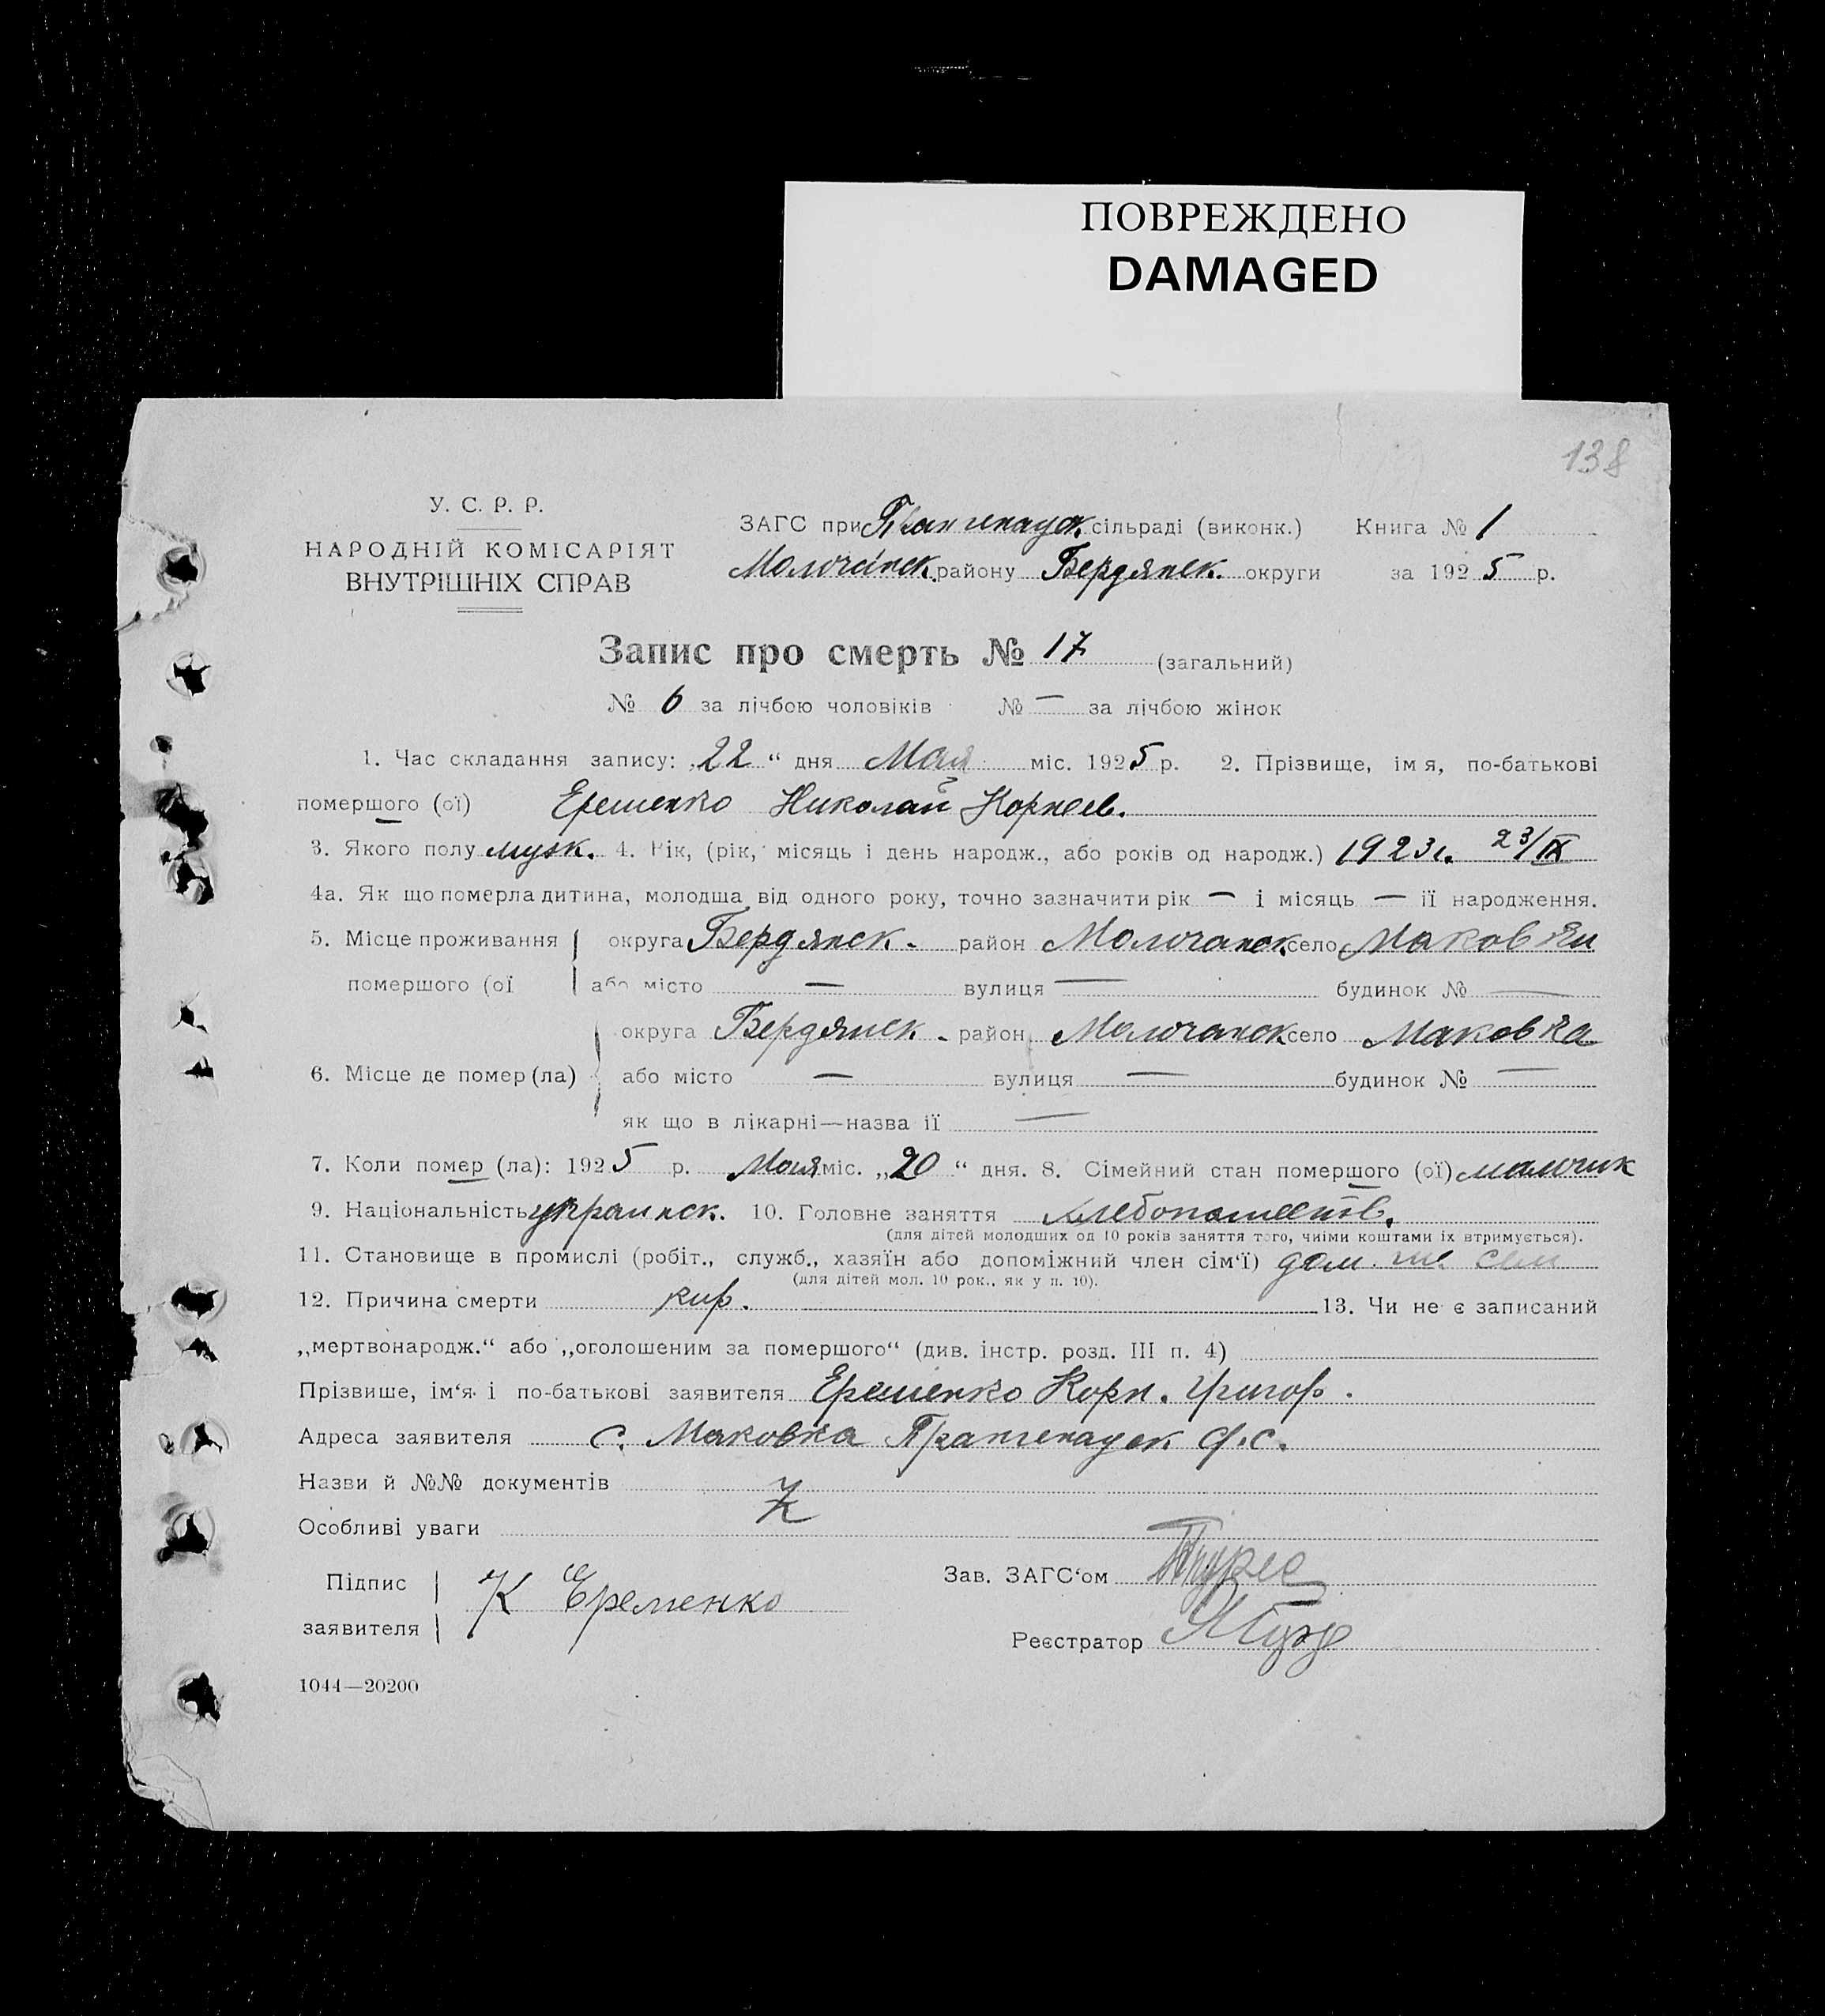 ПОВРЕЖДЕНО
DAMAGED
138
У. С. Р. Р.
НАРОДНІЙ КОМІСАРІЯТ
ВНУТРІШНІХ СПРАВ
ЗАГС при Прангенауск. сільраді (виконк.) Книга № 1
Молочанск. району Бердянск. округи за 1925 р.
Запис про смерть № 17 (загальний)
№ 6 за лічбою чоловіків № — за лічбою жінок
1. Час складання запису: „22“ дня Мая міс. 1925 р. 2. Прізвище, імя, по-батькові
помершого (ої) Еременко Николай Корнеев.
3. Якого полу муж. 4. Рік, (рік, місяць і день народж., або років од народж.) 1923 г. 23/IX
4а. Як що померла дитина, молодша від одного року, точно зазначити рік — і місяць — її народження.
5. Місце проживання округа Бердянск. район Молочанск село Маковки
помершого (ої або місто — вулиця — будинок № —
округа Бердянск. район Молочанск село Маковка
6. Місце де помер (ла) або місто — вулиця — будинок № —
як що в лікарні—назва її —
7. Коли помер (ла): 1925 р. Мая міс. „20“ дня. 8. Сімейний стан помершого (ої) мальчик
9. Національність украинск. 10. Головне заняття хлебопашеств.
(для дітей молодших од 10 років заняття того, чиїми коштами їх втримується).
11. Становище в промислі (робіт., служб., хазяїн або допоміжний член сім‘ї) дом.
(для дітей мол. 10 рок., як у п. 10).
12. Причина смерти 13. Чи не є записаний
„мертвонародж.“ або „оголошеним за помершого“ (див. інстр. розд. III п. 4)
Прізвише, ім‘я і по-батькові заявителя Еременко Корн. Григор.
Адреса заявителя с. Маковка Прангенауск с.с.
Назви й №№ документів
Особливі уваги
Підпис
заявителя К Еременко
Зав. ЗАГС‘ом
Реєстратор
1044—20200